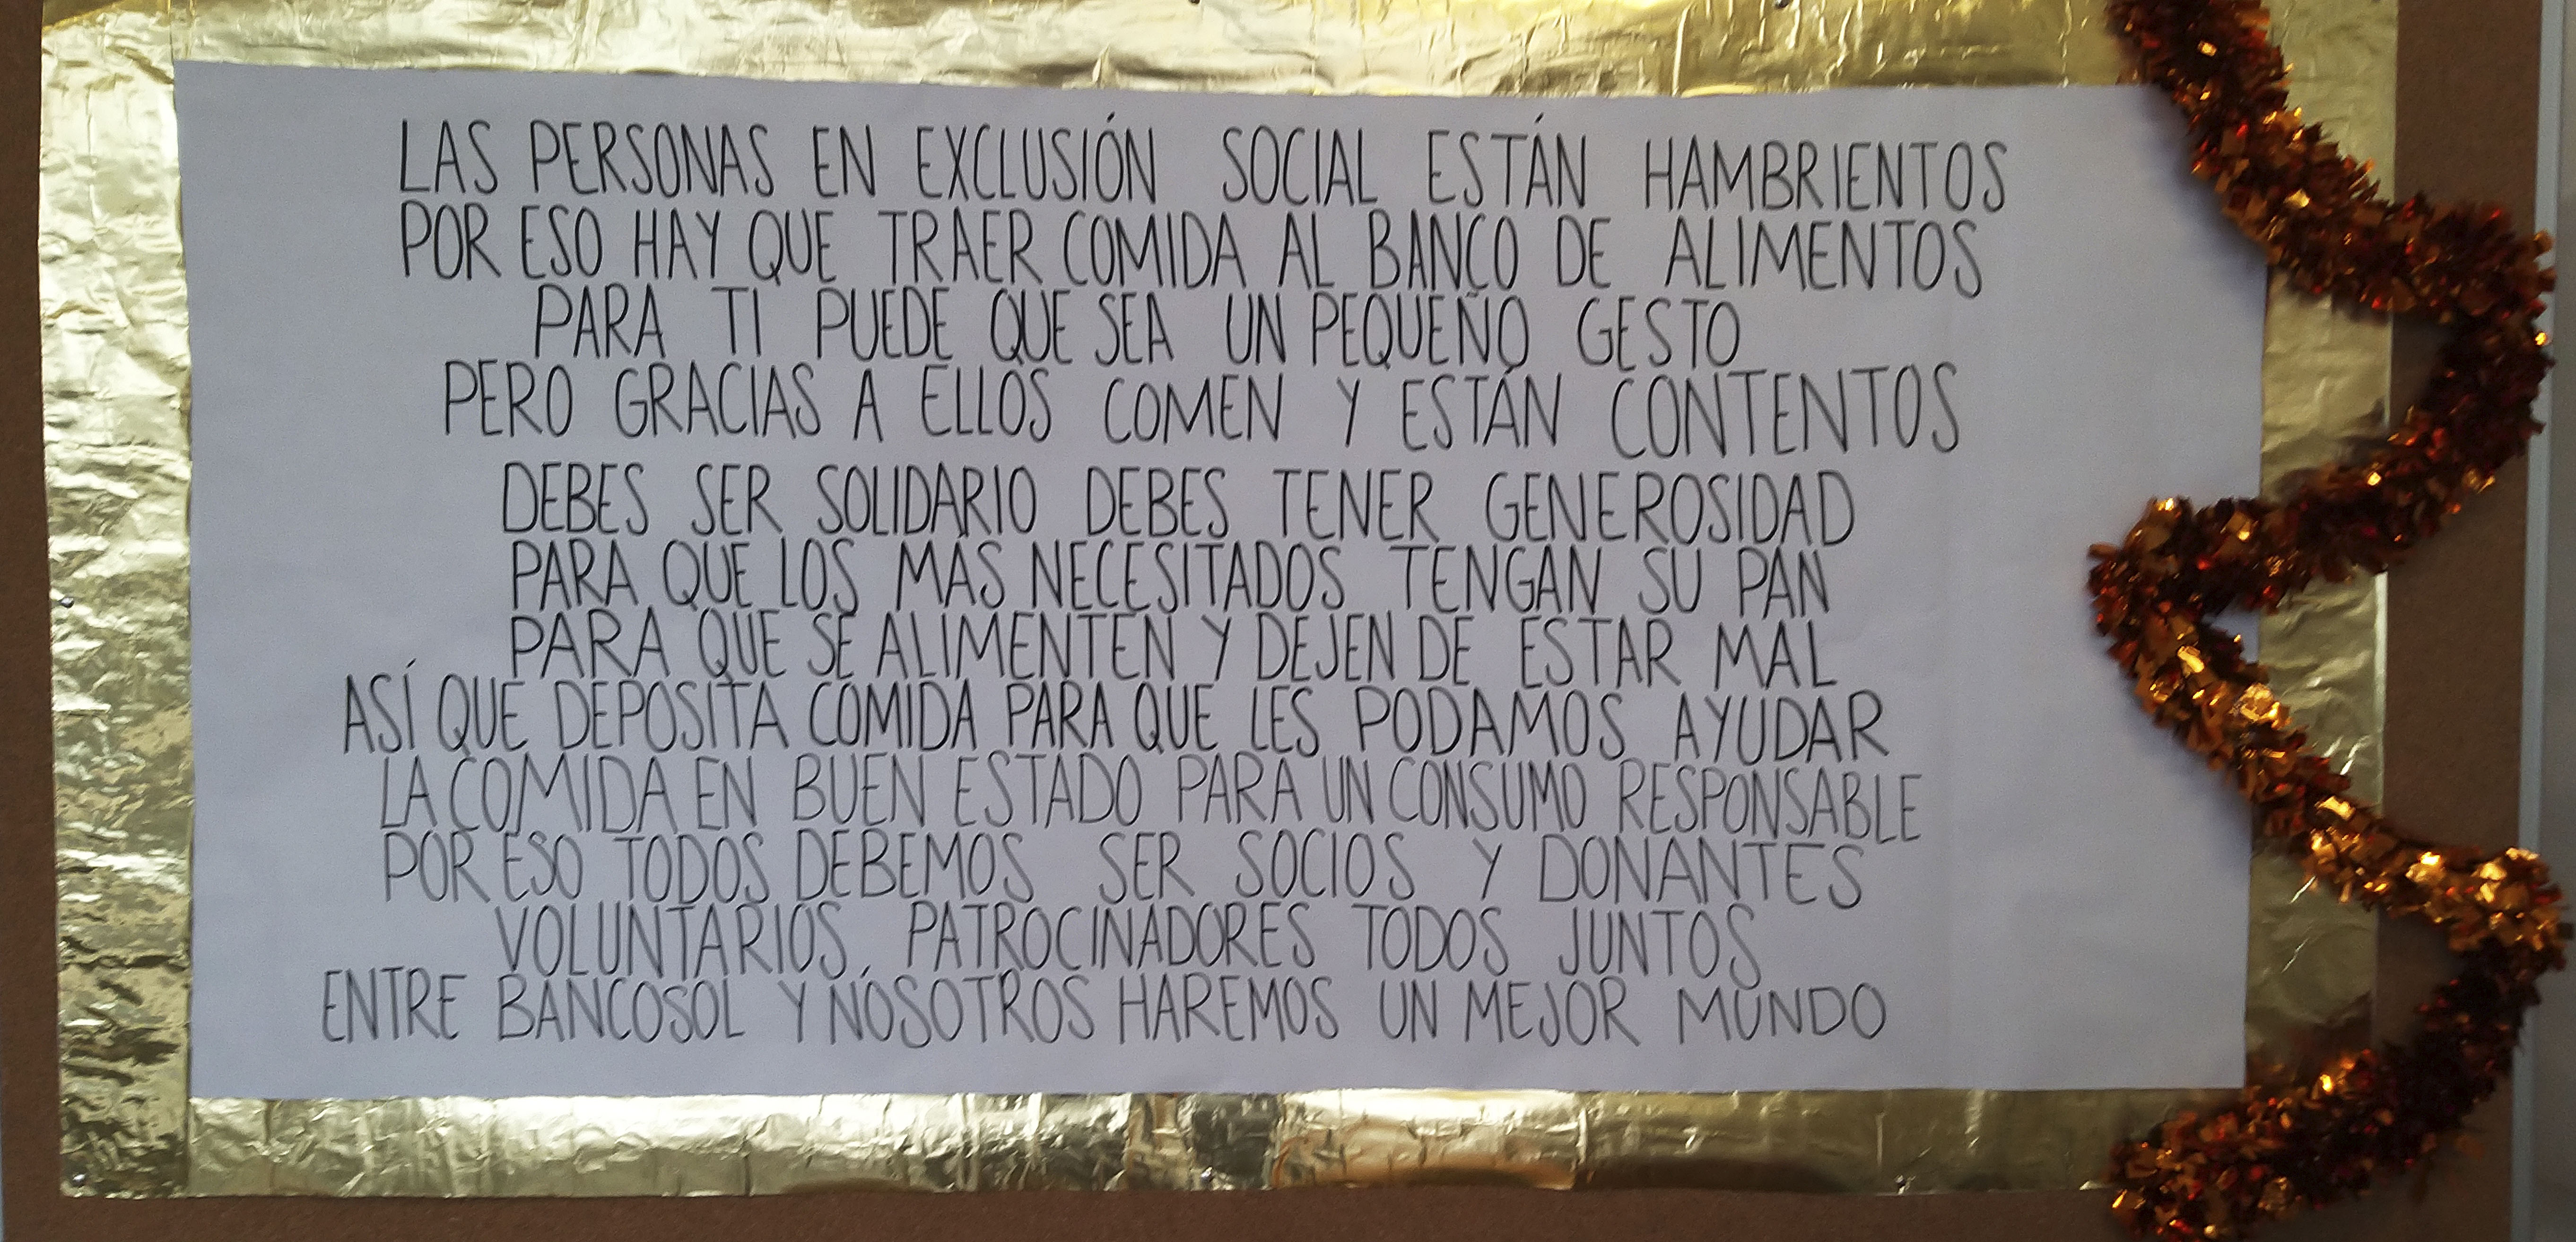 LAS PERSONAS EN EXCLUSIÓN SOCIAL ESTÁN HAMBRIENTOS
POR ESO HAY QUE TRAER COMIDA AL BANCO DE ALIMENTOS
PARA TI PUEDE QUE SEA UN PEQUEÑO GESTO
PERO GRACIAS A ELLOS COMEN Y ESTÁN CONTENTOS
DEBES SER SOLIDARIO DEBES TENER GENEROSIDAD
PARA QUE LOS MÁS NECESITADOS TENGAN SU PAN
PARA QUE SE ALIMENTEN Y DEJEN DE ESTAR MAL
ASÍ QUE DEPOSITA COMIDA PARA QUE LES PODAMOS AYUDAR
LA COMIDA EN BUEN ESTADO PARA UN CONSUMO RESPONSABLE
POR ESO TODOS DEBEMOS SER SOCIOS Y DONANTES
VOLUNTARIOS, PATROCINADORES TODOS JUNTOS
ENTRE BANCOSOL Y NOSOTROS HAREMOS UN MEJOR MUNDO